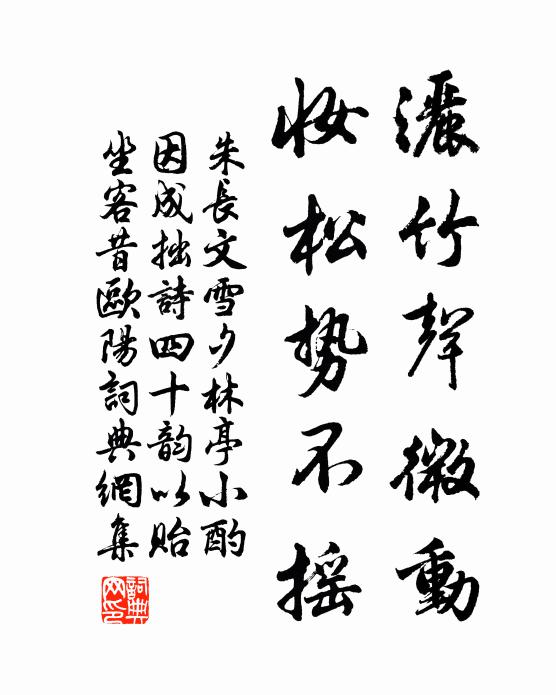 灑竹聲微動
妝松勢不摇
朱長文雪夕林亭小酌
因成拙詩四十韵以貽
坐客昔歐陽詞典網集
詞典網印